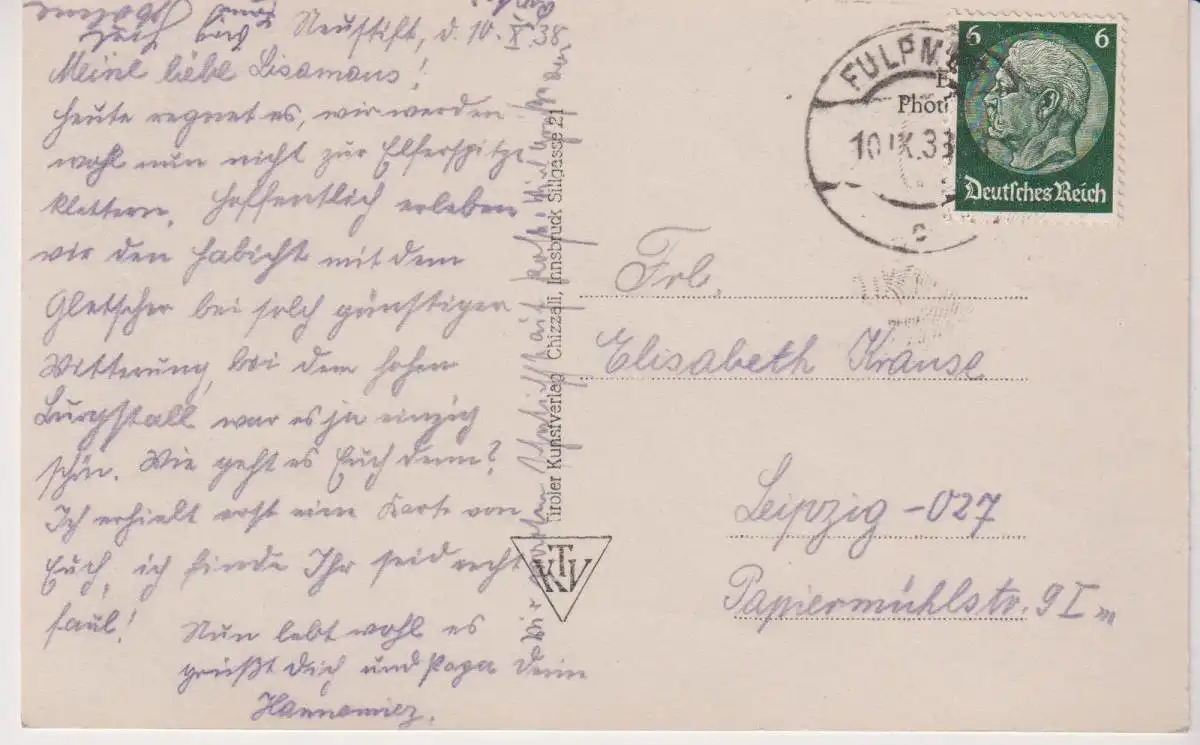 Neustift, d. 10.X.38
Meine liebe Lisamaus!
Heute regnet es, wir werden
wohl nun nicht zur Elferspitze
klettern. Hoffentlich erleben
wir den Habicht mit dem
Gletscher bei solch günstiger
Witterung, bei dem hohen
Burgstall war es ja einzig
schön. Wie geht es Euch denn?
Ich erhielt erst eine Karte von
Euch, ich finde Ihr seid recht
faul!
Nun lebt wohl es
grüßt Dich und Papa Deine
Tiroler Kunstverlag Chizzali, Innsbruck Sillgasse 21
KTV
FULPMES
10.IX.38
c
6 6
Deutsches Reich
Phot
Frl.
Elisabeth Krause
Leipzig-O27
Papiermühlstr. 9 I